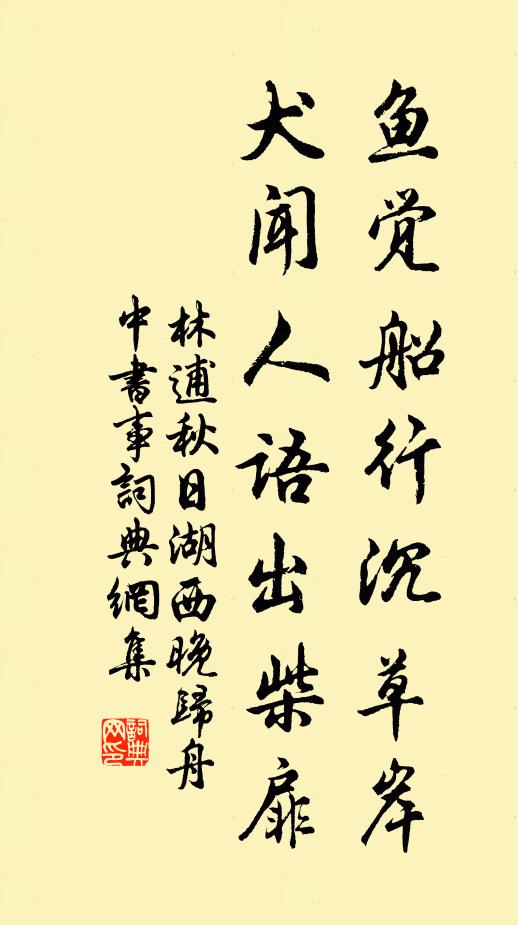 鱼觉船行沉草岸
犬闻人语出柴扉
林逋秋日湖西晚歸舟
中書事詞典網集
詞典
网印